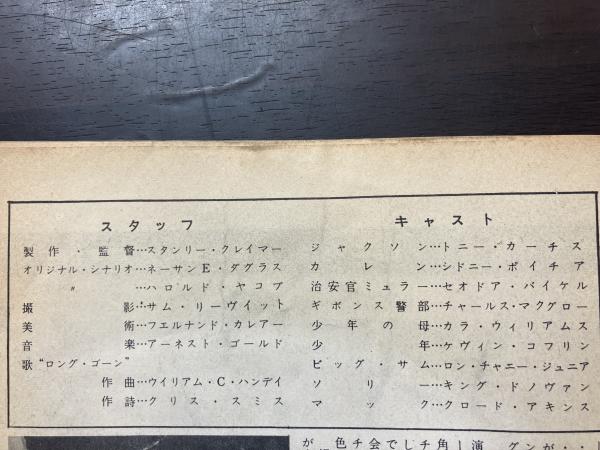 スタッフ
製作・監督…スタンリー・クレイマー
オリジナル・シナリオ…ネーサンE・ダグラス
〃 ハロルド・ヤコブ
撮影…サム・リーヴィット
美術…フエルナンド・カレアー
音楽…アーネスト・ゴールド
歌“ロング・ゴーン”
作曲…ウイリアム・C・ハンデイ
作詩…クリス・スミス
キャスト
ジャクソン…トニー・カーチス
カレン…シドニー・ポイチア
治安官ミュラー…セオドア・バイケル
ギボンス警部…チャールス・マクグロー
少年の母…カラ・ウィリアムス
少年…ケヴィン・コフリン
ビッグ・サム…ロン・チャニー・ジュニア
ソリー…キング・ドノヴァン
マック…クロード・アキンス